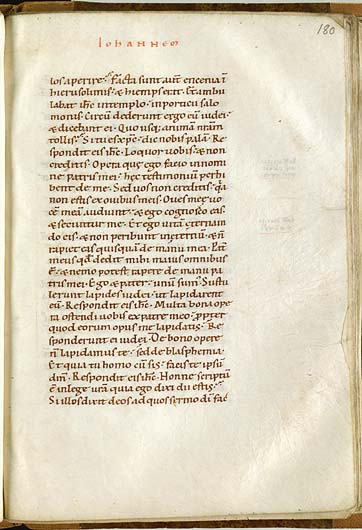 180
Iohannem
los aperire · Facta sunt aut̄ encenia ī
hierusolimis · & hiemps erat · Et ambu
labat ih̅c in templo · in porticu salo
monis · Circu̅ dederunt ergo eu̅ iudei ·
& dicebant ei · Quo usq; anima̅ nr̅am
tollis · Si tu es xp̅c · dic nobis pala̅ · Re
spondit eis ih̅c · Loquor uobis · & non
creditis · Opera que ego facio in nomi
ne patris mei · hec testimoniu̅ perhi
bent de me · Sed uos non creditis · q̅a
non estis ex ouibus meis · Oues meę uo
ce̅ mea̅ audiunt · & ego cognosco eas
& secuntur me · Et ego uita̅ ęternam
do eis · & non peribunt in ęternu̅ · & n̅
rapiet eas quisqua̅ de manu mea · Pat̅
meus qd̅ dedit mihi maius omnibus
ē · & nemo potest rapere de manu pa
tris mei · Ego & pater · unu̅ sum̅ · Sus
tulerunt lapides iudei · ut lapidarent
eu̅ · Respondit eis ih̅c · Multa bona ope
ra ostendi uobis ex patre meo · ꝓpter
quod eorum opus me lapidatis · Re
sponderunt ei iudei · De bono opere
n̅ lapidamus te · sed de blasphemia ·
Et quia tu homo cu̅ sis · facis te ipsu̅
dm̅ · Respondit eis ih̅c · Nonne scriptu̅
ē in lege ur̅a · quia ego dixi dii estis ·
Si illos dixit deos ad quos sermo di̅ fac